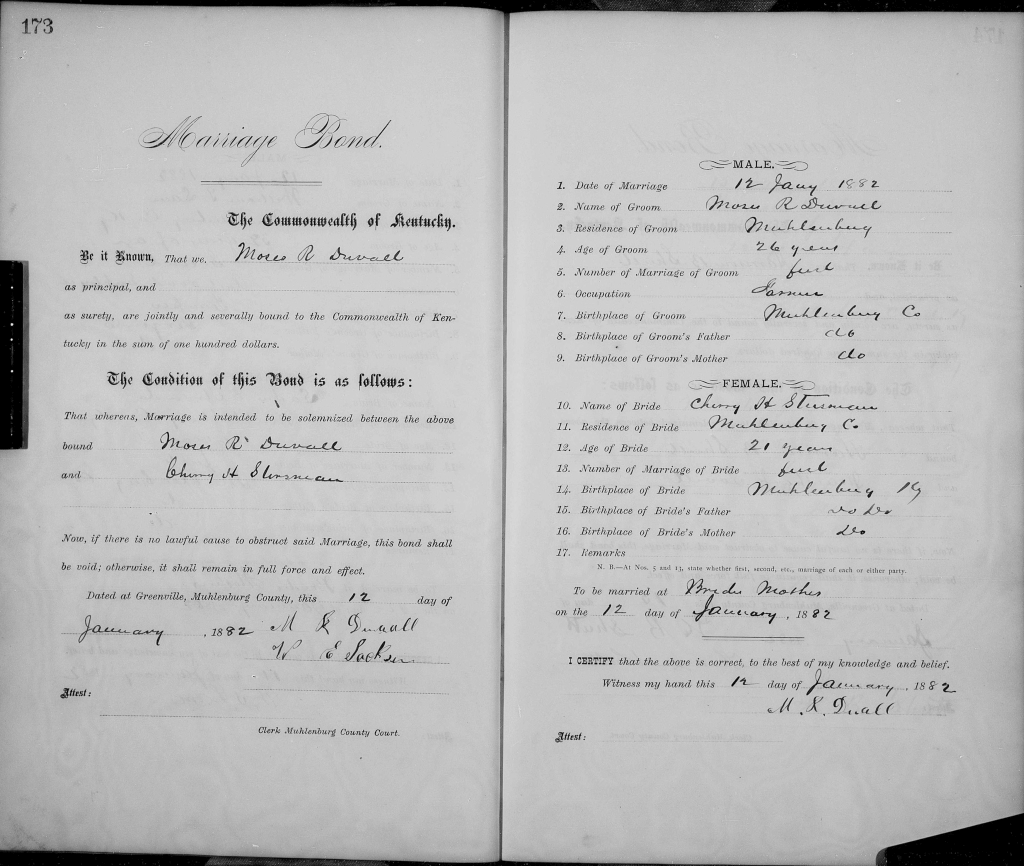 173
Marriage Bond.
The Commonwealth of Kentucky.
Be it Known, That we, Moses R Duvall
as principal, and
as surety, are jointly and severally bound to the Commonwealth of Ken-
tucky in the sum of one hundred dollars.
The Condition of this Bond is as follows:
That whereas, Marriage is intended to be solemnized between the above
bound Moses R Duvall
and Cherry H Stirsman
Now, if there is no lawful cause to obstruct said Marriage, this bond shall
be void; otherwise, it shall remain in full force and effect.
Dated at Greenville, Muhlenburg County, this 12 day of
January, 1882 M R Duvall
W E
Attest:
Clerk Muhlenburg County Court.
MALE.
1. Date of Marriage 12 Jany 1882
2. Name of Groom Moses R Duvall
3. Residence of Groom Muhlenburg
4. Age of Groom 26 years
5. Number of Marriage of Groom first
6. Occupation Farmer
7. Birthplace of Groom Muhlenburg Co
8. Birthplace of Groom's Father do
9. Birthplace of Groom's Mother do
FEMALE.
10. Name of Bride Cherry H Stirsman
11. Residence of Bride Muhlenburg Co
12. Age of Bride 21 years
13. Number of Marriage of Bride first
14. Birthplace of Bride Muhlenburg Ky
15. Birthplace of Bride's Father Do Do
16. Birthplace of Bride's Mother Do
17. Remarks
N. B.—At Nos. 5 and 13, state whether first, second, etc., marriage of each or either party.
To be married at Brides Mother
on the 12 day of January, 1882
I CERTIFY that the above is correct, to the best of my knowledge and belief.
Witness my hand this 12 day of January, 1882
M. R. Duvall
Attest: